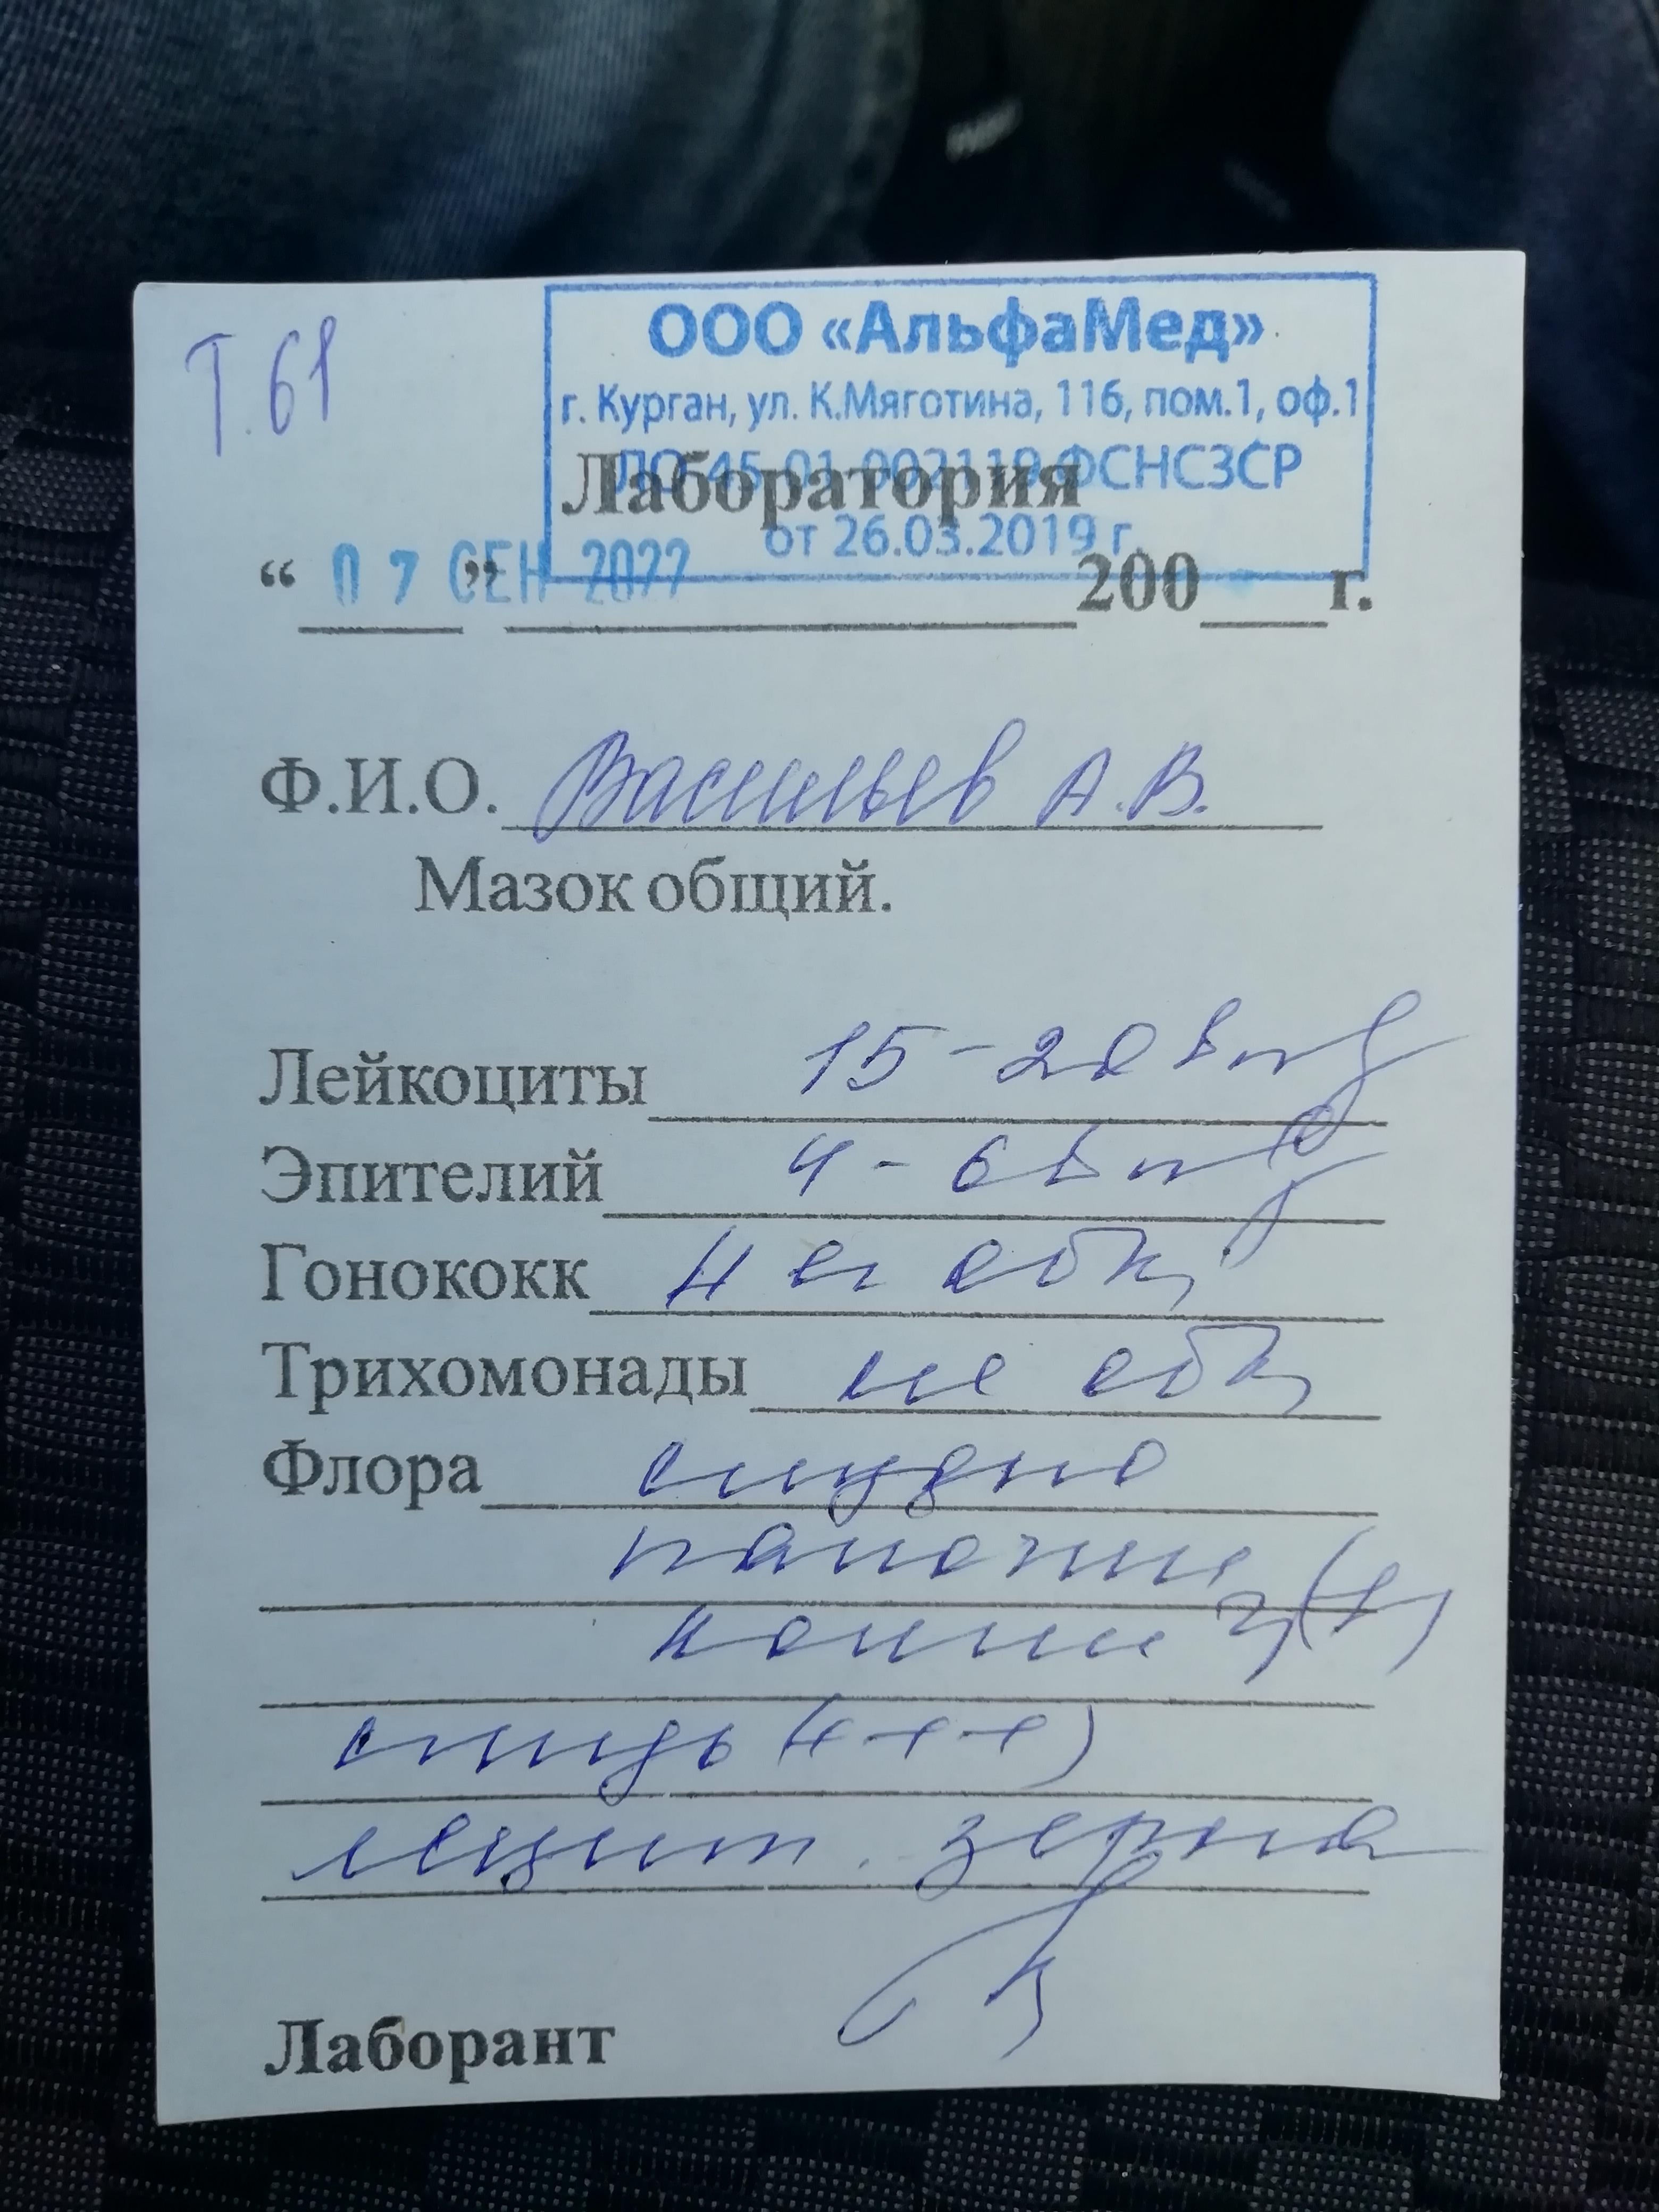 Т.61
ООО «АльфаМед»
г. Курган, ул. К.Мяготина, 116, пом.1, оф.1
ЛО-45-01-002119 ФСНСЗСР
от 26.03.2019 г.
Лаборатория
“ 07 ” СЕН 2022 200 г.
Ф.И.О. Васильев А.В.
Мазок общий.
Лейкоциты 15-20 в п/з
Эпителий 4-6 в п/з
Гонококк не обн,
Трихомонады не обн,
Флора скудно
палочки
кокки (+)
слизь (+++)
лецит. зерна
Лаборант